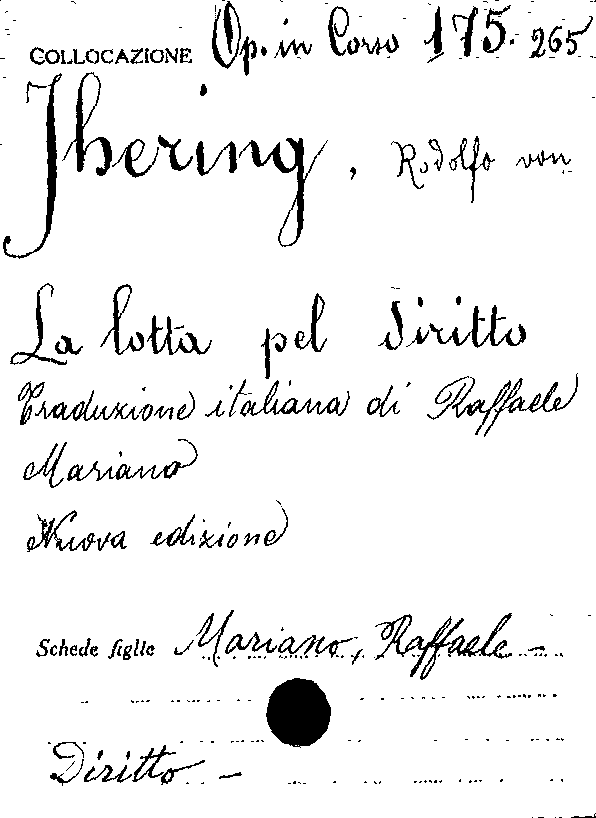 COLLOCAZIONE Op. in Corso 175. 265
Jhering, Rodolfo von
La lotta pel diritto
Traduzione italiana di Raffaele
Mariano
Nuova edizione
Schede figlie Mariano, Raffaele -
Diritto -